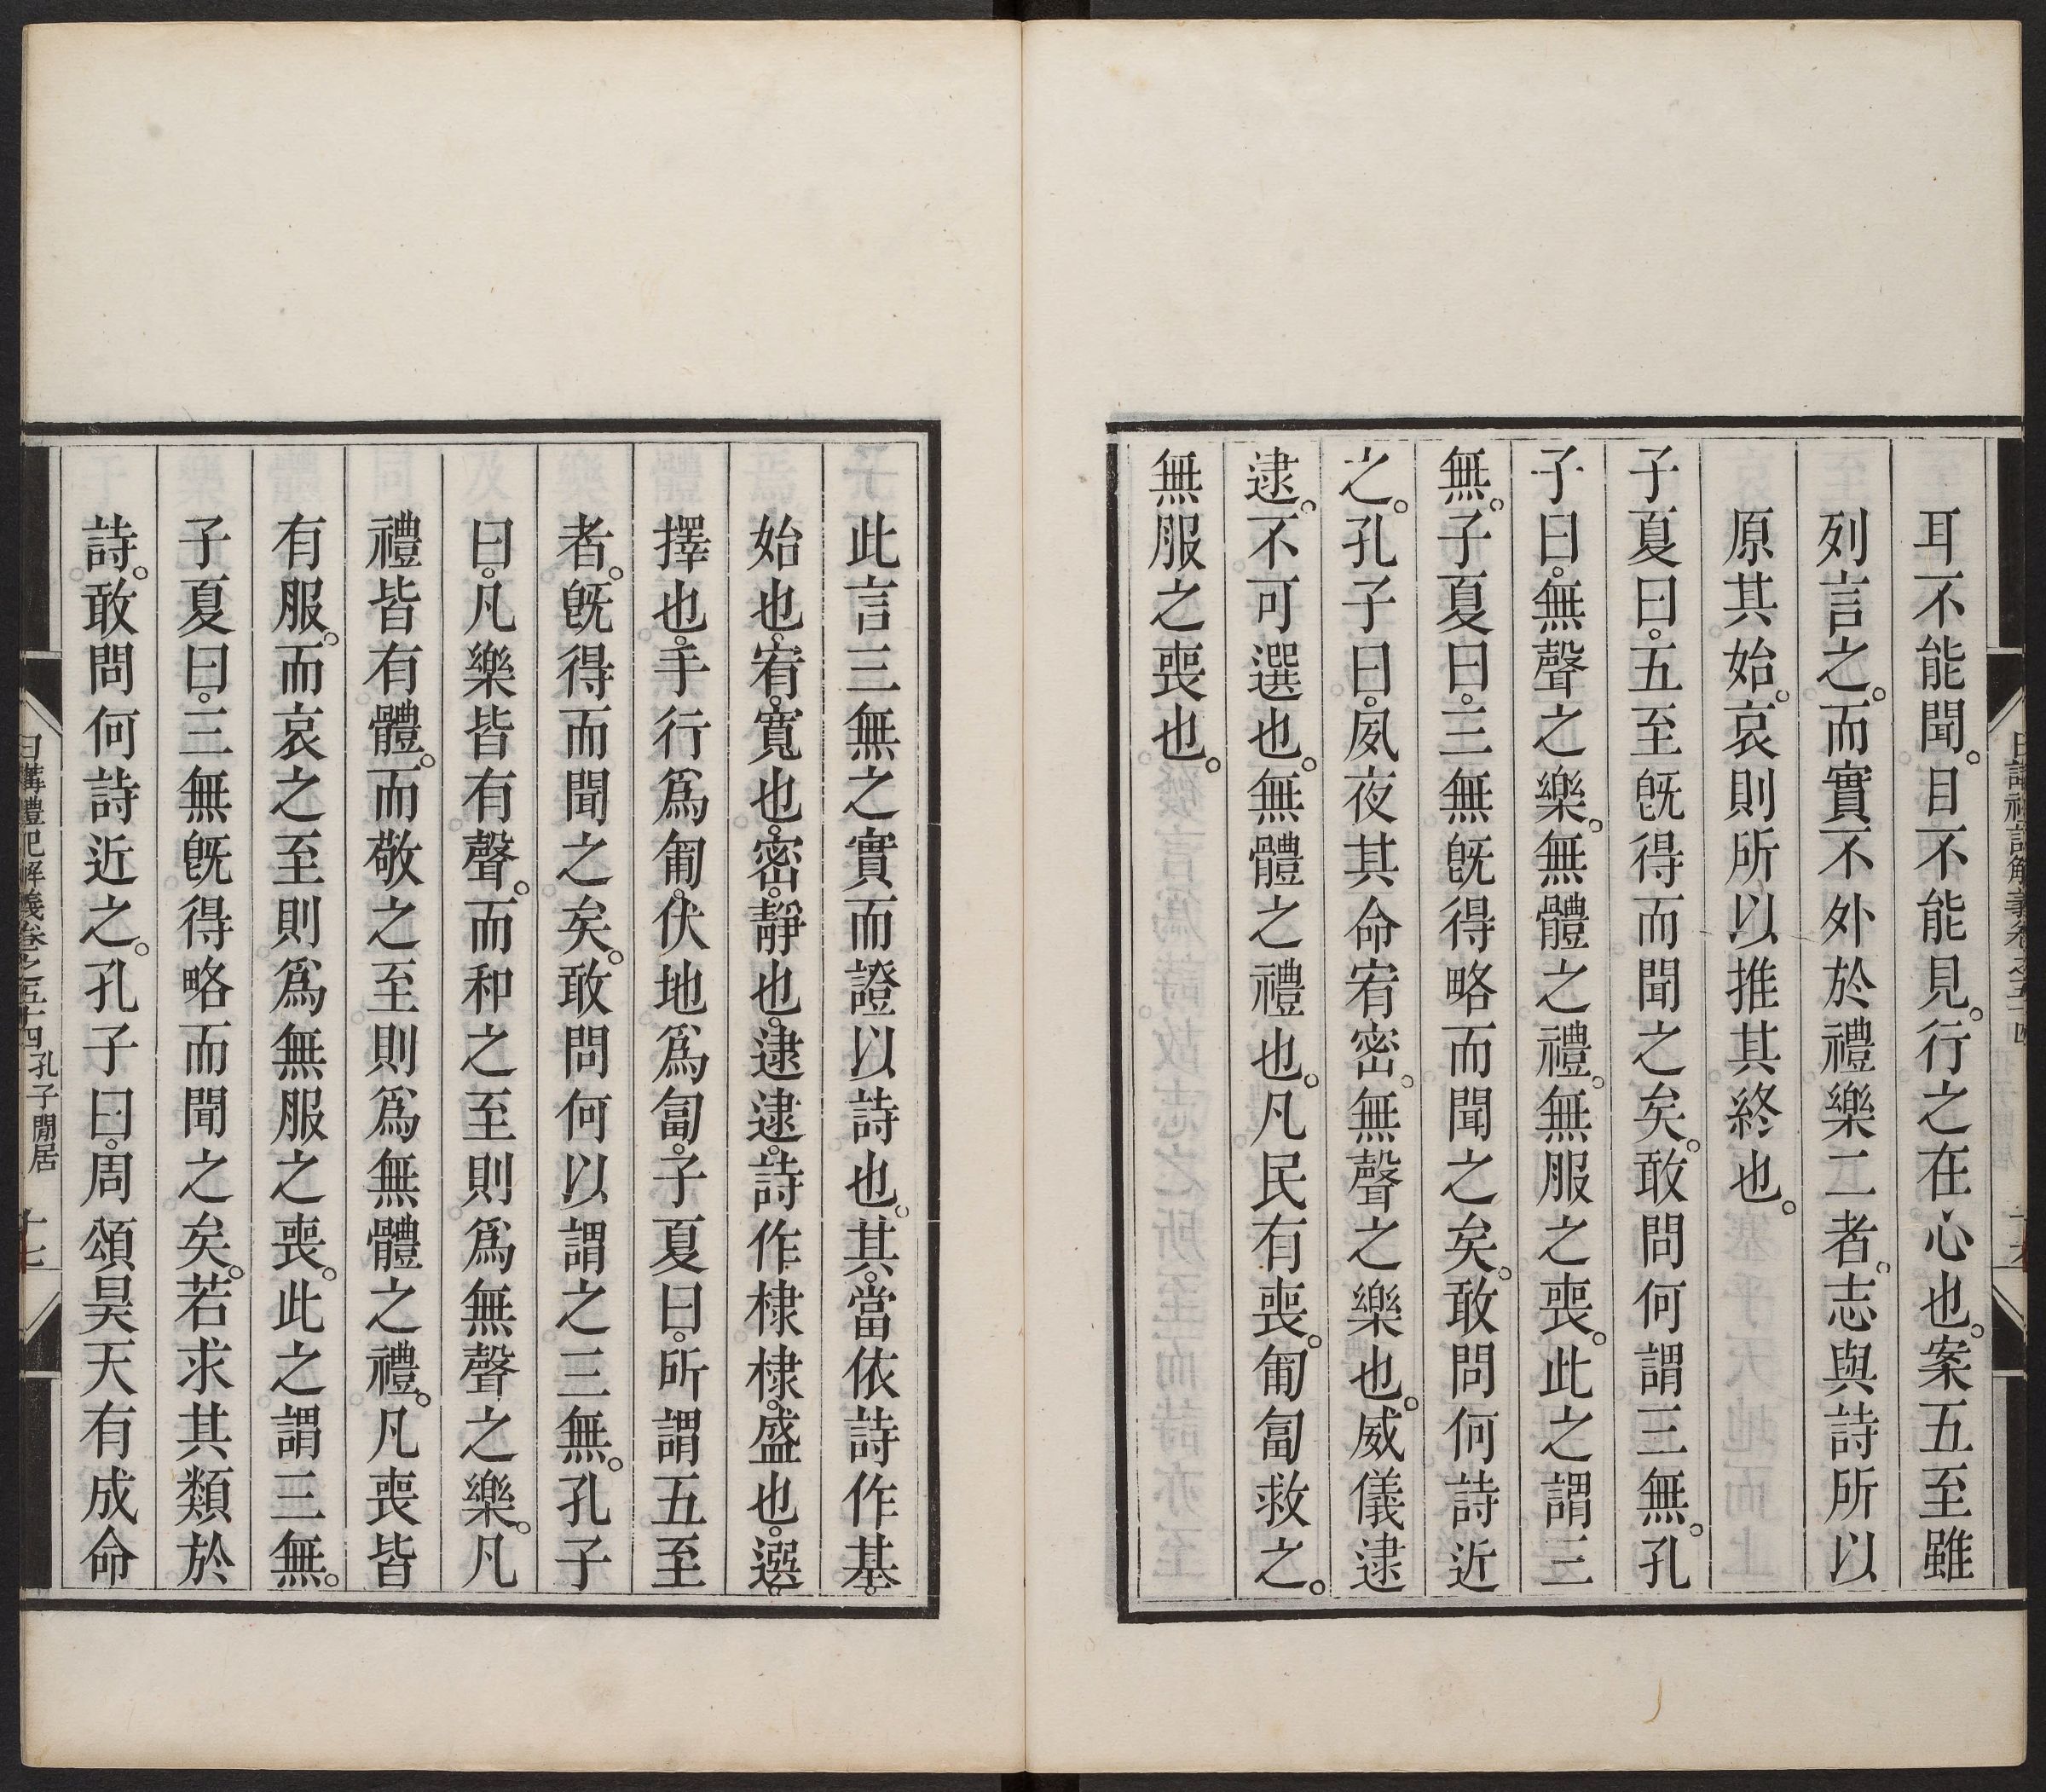 耳不能聞。目不能見。行之在心也。案五至雖
列言之。而實不外於禮樂二者。志與詩所以
原其始。哀則所以推其終也。
子夏曰。五至旣得而聞之矣。敢問何謂三無。孔
子曰。無聲之樂。無體之禮。無服之喪。此之謂三
無。子夏曰。三無旣得略而聞之矣。敢問何詩近
之。孔子曰。夙夜其命宥密。無聲之樂也。威儀逮
逮。不可選也。無體之禮也。凡民有喪。匍匐救之。
無服之喪也。
此言三無之實而證以詩也。其。當依詩作基。
始也。宥。寬也。密。靜也。逮逮。詩作棣棣。盛也。選。
擇也。手行爲匍。伏地爲匐。子夏曰。所謂五至
者。旣得而聞之矣。敢問何以謂之三無。孔子
曰。凡樂皆有聲。而和之至則爲無聲之樂。凡
禮皆有體。而敬之至則爲無體之禮。凡喪皆
有服。而哀之至則爲無服之喪。此之謂三無。
子夏曰。三無旣得略而聞之矣。若求其類於
詩。敢問何詩近之。孔子曰。周頌昊天有成命
日講禮記解義卷之五十四 孔子閒居 十七